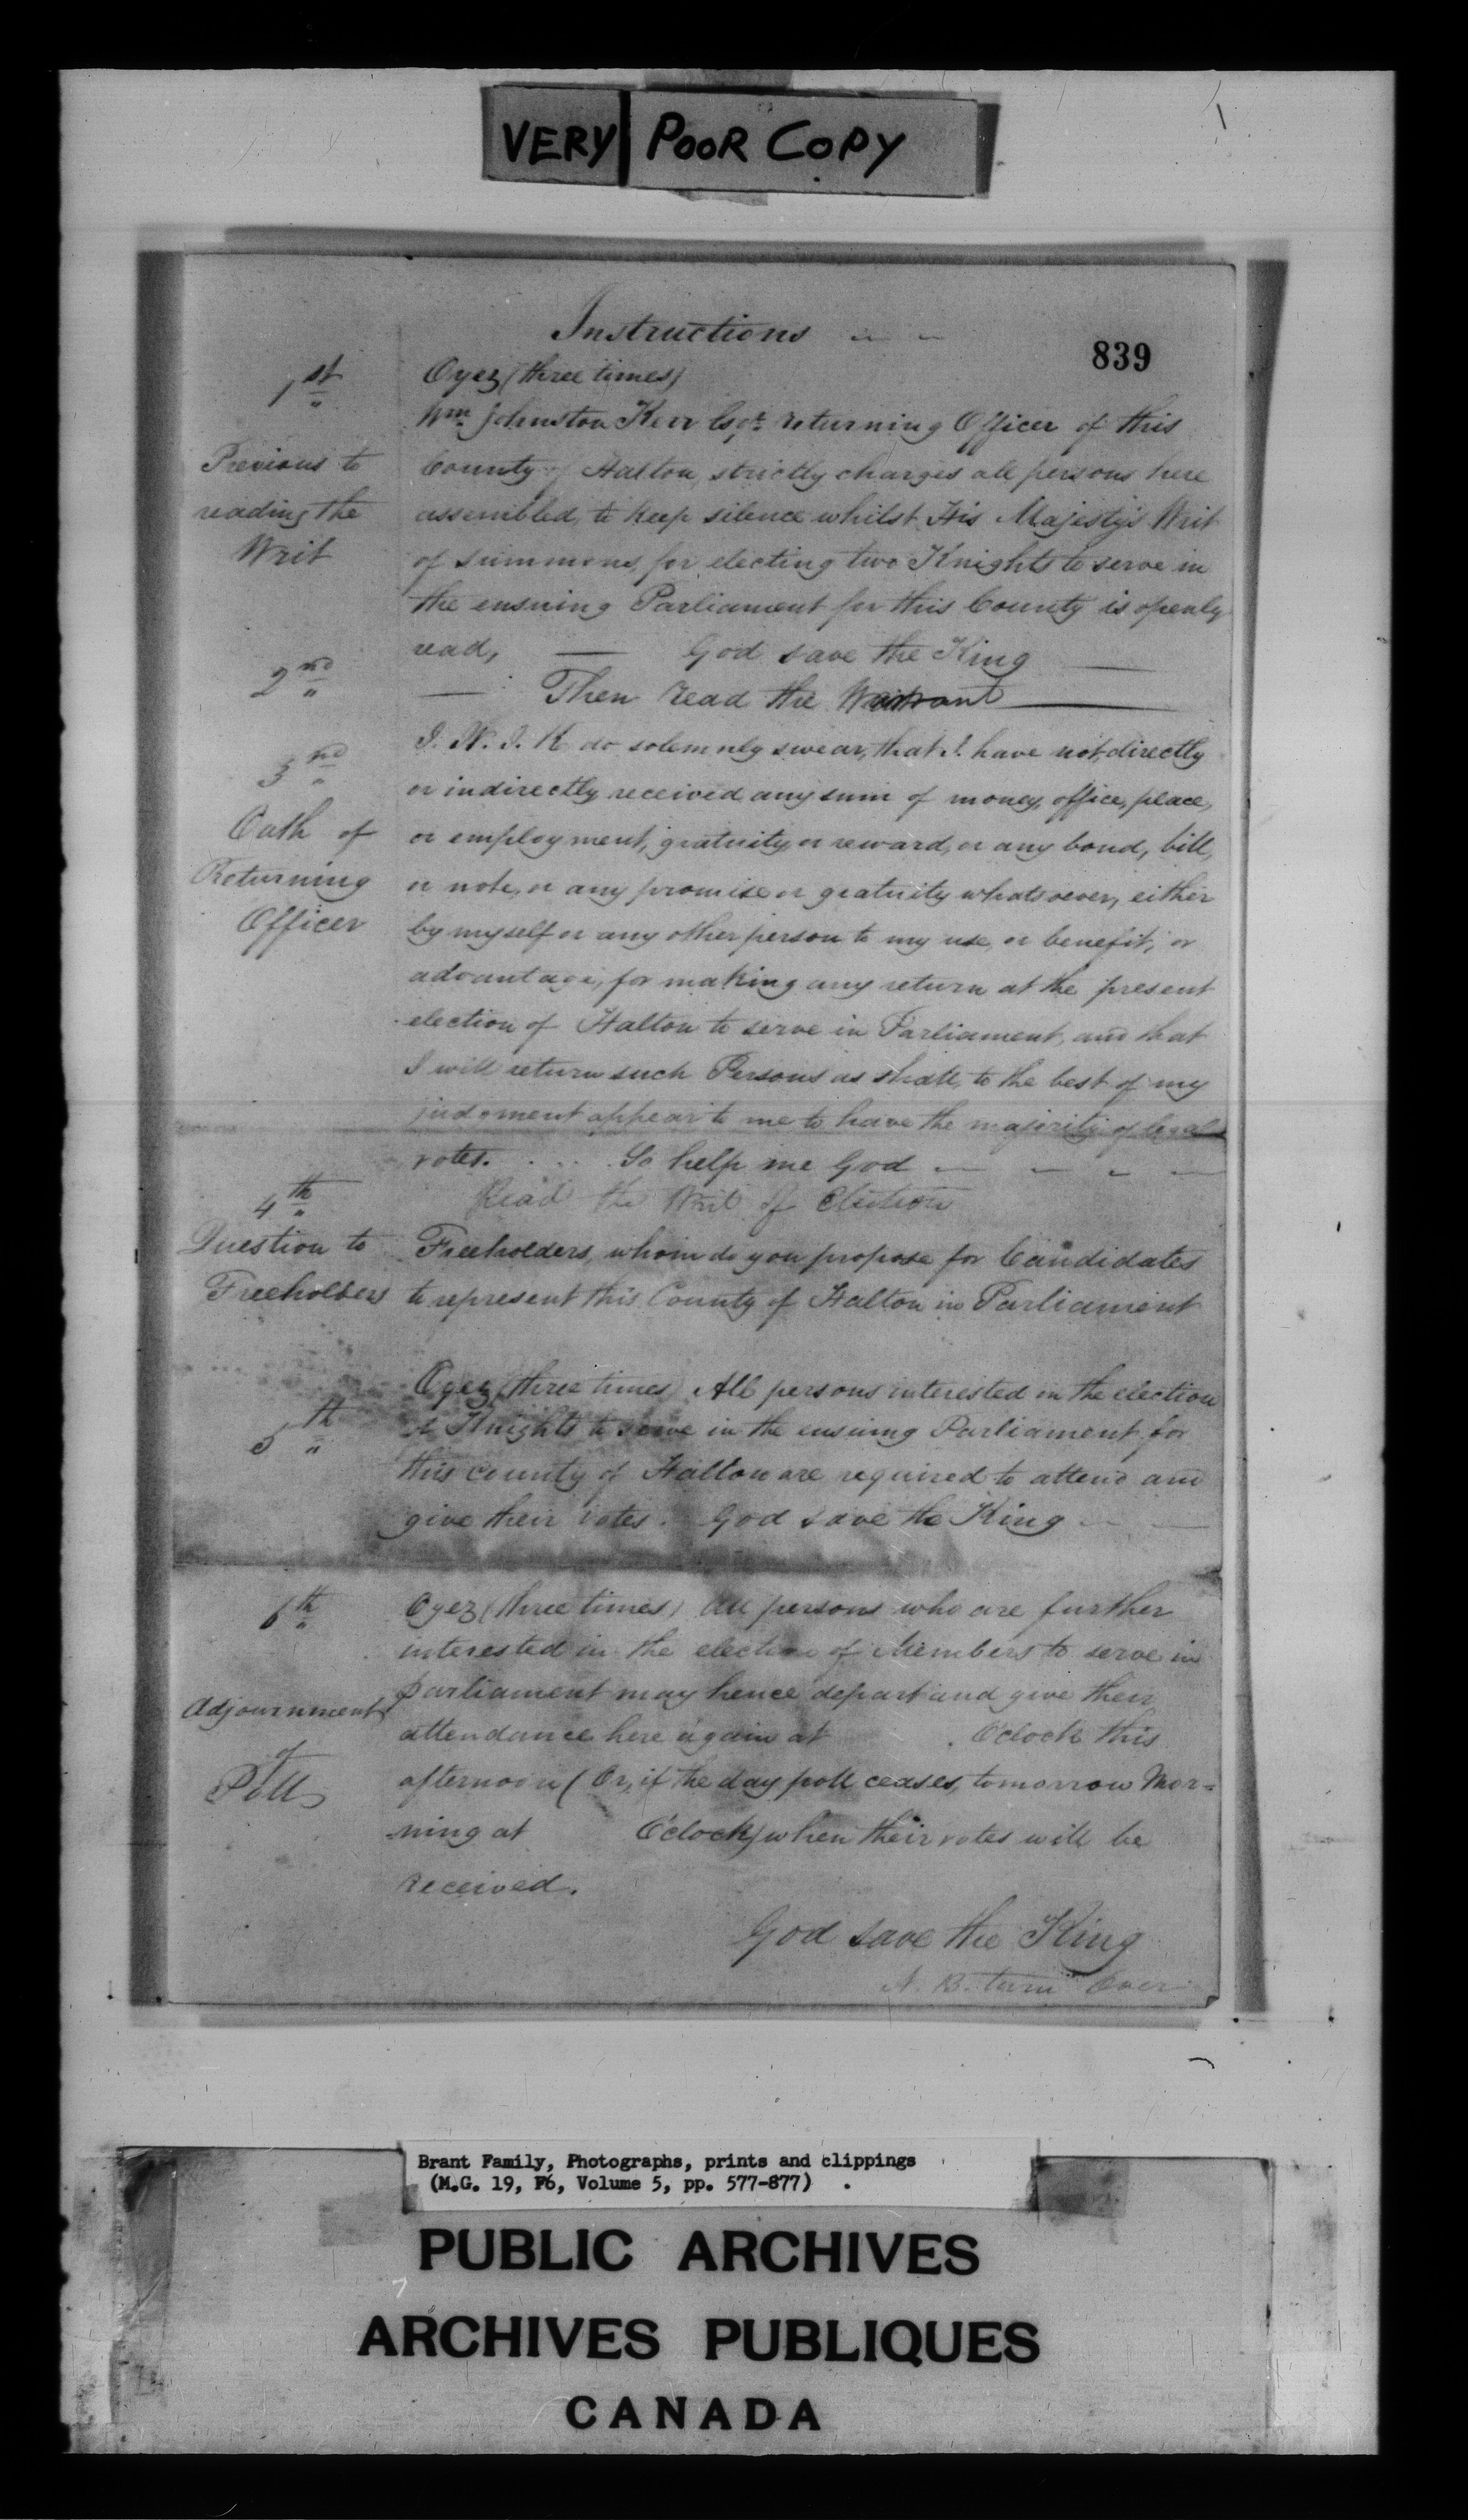 VERY POOR COPY
Instructions
839
1st
Oyez (three times)
Wm Johnston Kerr Esqr. returning Officer of this
Previous to
County of Halton, strictly charges all persons here
reading the
assembled, to keep silence whilst His Majesty's Writ
Writ
of summons, for electing two Knights to serve in
the ensuing Parliament for this County is openly
read, — God save the King —
2nd
— Then read the Warrant —
3rd
I. W. J. K. do solemnly swear, that I have not, directly
or indirectly received any sum of money, office, place,
Oath of
or employment, gratuity, or reward, or any bond, bill,
Returning
or note, or any promise or gratuity whatsoever, either
Officer
by myself or any other person to my use, or benefit, or
advantage, for making any return at the present
election of Halton to serve in Parliament, and that
I will return such Persons as shall, to the best of my
judgment appear to me to have the majority of legal
votes. . . . . So help me God — — — —
4th
Read the Writ of Election
Question to
Freeholders, whom do you propose for Candidates
Freeholders
to represent this County of Halton in Parliament
Oyez (three times) All persons interested in the election
5th
of Knights to serve in the ensuing Parliament for
this county of Halton are required to attend and
give their votes. God save the King — —
6th
Oyez (three times) All persons who are further
interested in the election of Members to serve in
Parliament may hence depart and give their
Adjournment
attendance here again at O'clock this
of
Poll
afternoon (Or, if the day poll ceases, tomorrow Mor=
-ning at O'clock) when their votes will be
received.
God save the King
N. B. turn Over
Brant Family, Photographs, prints and clippings
(M.G. 19, F6, Volume 5, pp. 577-877)
PUBLIC ARCHIVES
ARCHIVES PUBLIQUES
CANADA